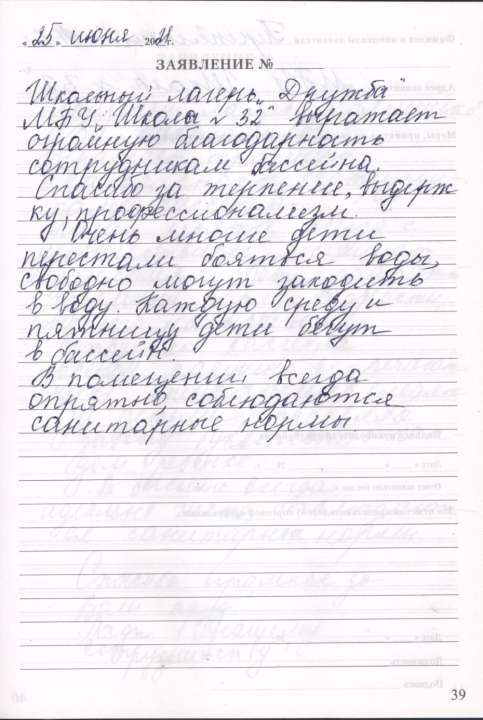 "25" июня 2021 г.
ЗАЯВЛЕНИЕ №
Школьный лагерь „Дружба"
МБУ „Школы № 32" выражает
огромную благодарность
сотрудникам бассейна.
Спасибо за терпение, выдерж
ку, профессионализм.
Очень многие дети
перестали бояться воды,
свободно могут заходить
в воду. Каждую среду и
пятницу дети бегут
в бассейн.
В помещении всегда
опрятно, соблюдаются
санитарные нормы.
39